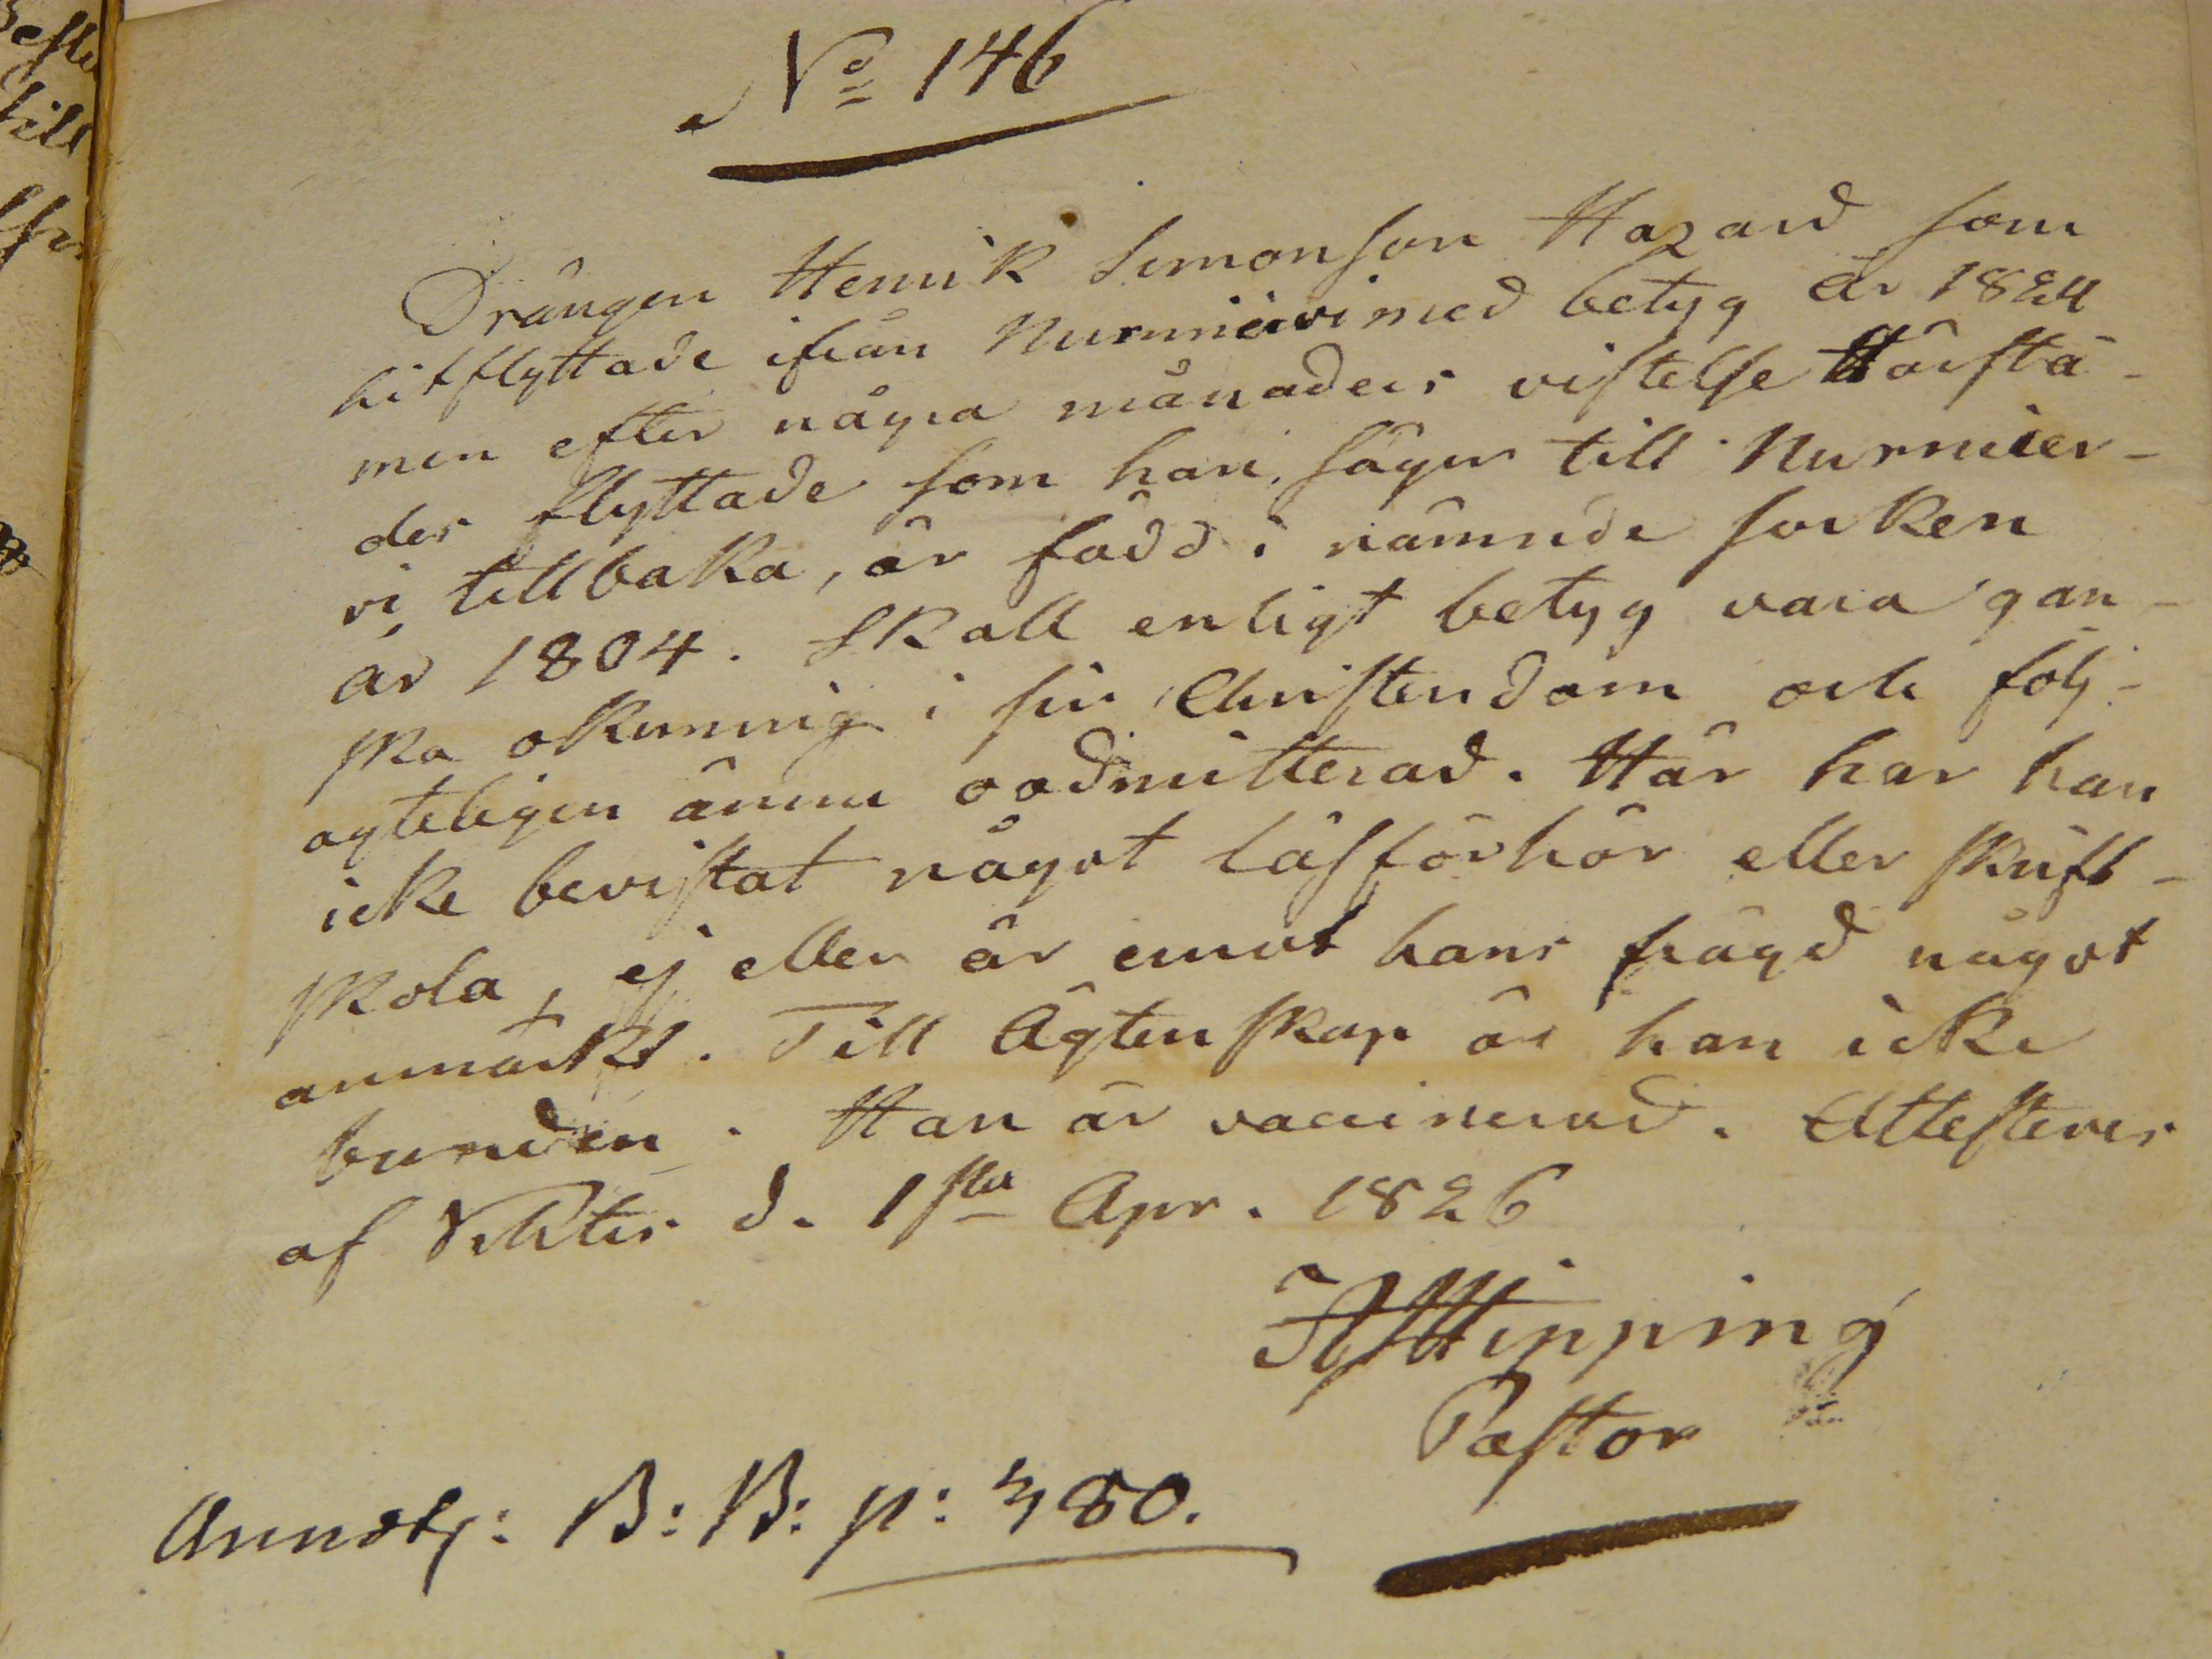 No 146
Drängen Henrik Simonsson Hazard som
hitflyttade ifrån Nurmijärvi med betyg År 1824
men efter några månaders vistelse härstä-
des flyttade som han säger till Nurmijer-
vi tillbaka, är född i nämnde socken
år 1804. Skall enligt betyg vara gan-
ska okunnig i sin Christendom och följ-
agteligen ännu oadmitterad. Här har han
icke bevistat något läsförhör eller skrift-
skola, ej eller är emot hans frägd något
anmärkt. Till Ägtenskap är han icke
bunden. Han är vaccinerad. Attesteras
af Vichtis d. 1sta Apr. 1826
Hipping
Pastor
Annoty: B: B: p: 480.